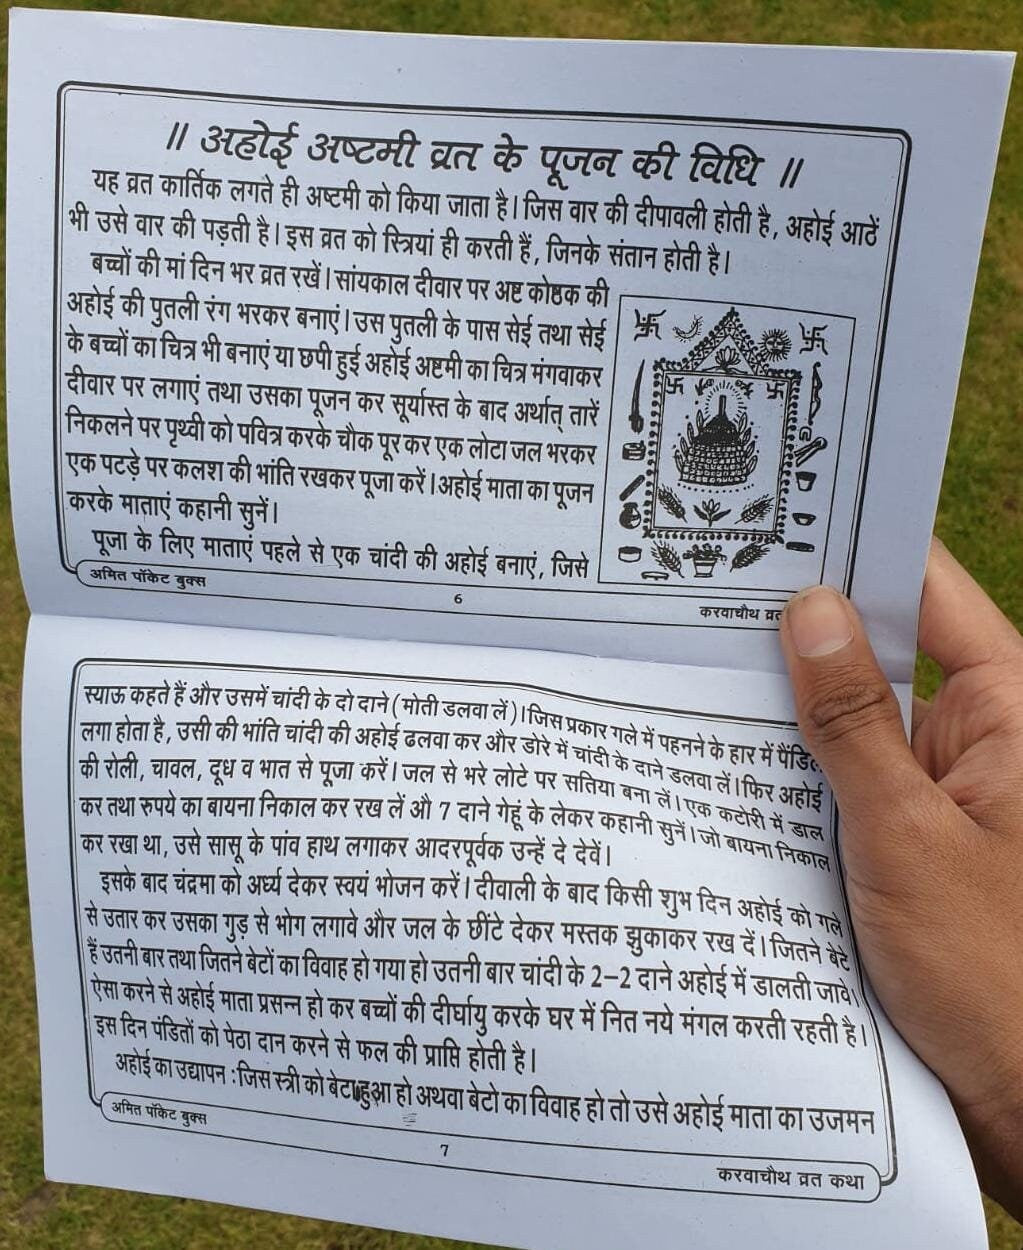 ॥ अहोई अष्टमी व्रत के पूजन की विधि ॥
यह व्रत कार्तिक लगते ही अष्टमी को किया जाता है। जिस वार की दीपावली होती है, अहोई आठें
भी उसे वार की पड़ती है। इस व्रत को स्त्रियां ही करती हैं, जिनके संतान होती है।
बच्चों की मां दिन भर व्रत रखें। सांयकाल दीवार पर अष्ट कोष्ठक की
अहोई की पुतली रंग भरकर बनाएं। उस पुतली के पास सेई तथा सेई
के बच्चों का चित्र भी बनाएं या छपी हुई अहोई अष्टमी का चित्र मंगवाकर
दीवार पर लगाएं तथा उसका पूजन कर सूर्यास्त के बाद अर्थात् तारें
निकलने पर पृथ्वी को पवित्र करके चौक पूर कर एक लोटा जल भरकर
एक पटड़े पर कलश की भांति रखकर पूजा करें। अहोई माता का पूजन
करके माताएं कहानी सुनें।
पूजा के लिए माताएं पहले से एक चांदी की अहोई बनाएं, जिसे
अमित पॉकेट बुक्स
6
करवाचौथ व्रत
स्याऊ कहते हैं और उसमें चांदी के दो दाने (मोती डलवा लें)। जिस प्रकार गले में पहनने के हार में पैंडिल
लगा होता है, उसी की भांति चांदी की अहोई ढलवा कर और डोरे में चांदी के दाने डलवा लें। फिर अहोई
की रोली, चावल, दूध व भात से पूजा करें। जल से भरे लोटे पर सतिया बना लें। एक कटोरी में डाल
कर तथा रुपये का बायना निकाल कर रख लें औ 7 दाने गेहूं के लेकर कहानी सुनें। जो बायना निकाल
कर रखा था, उसे सासू के पांव हाथ लगाकर आदरपूर्वक उन्हें दे देवें।
इसके बाद चंद्रमा को अर्घ्य देकर स्वयं भोजन करें। दीवाली के बाद किसी शुभ दिन अहोई को गले
से उतार कर उसका गुड़ से भोग लगावे और जल के छींटे देकर मस्तक झुकाकर रख दें। जितने बेटे
हैं उतनी बार तथा जितने बेटों का विवाह हो गया हो उतनी बार चांदी के 2–2 दाने अहोई में डालती जावे।
ऐसा करने से अहोई माता प्रसन्न हो कर बच्चों की दीर्घायु करके घर में नित नये मंगल करती रहती है।
इस दिन पंडितों को पेठा दान करने से फल की प्राप्ति होती है।
अहोई का उद्यापन : जिस स्त्री को बेटा हुआ हो अथवा बेटो का विवाह हो तो उसे अहोई माता का उजमन
अमित पॉकेट बुक्स
7
करवाचौथ व्रत कथा